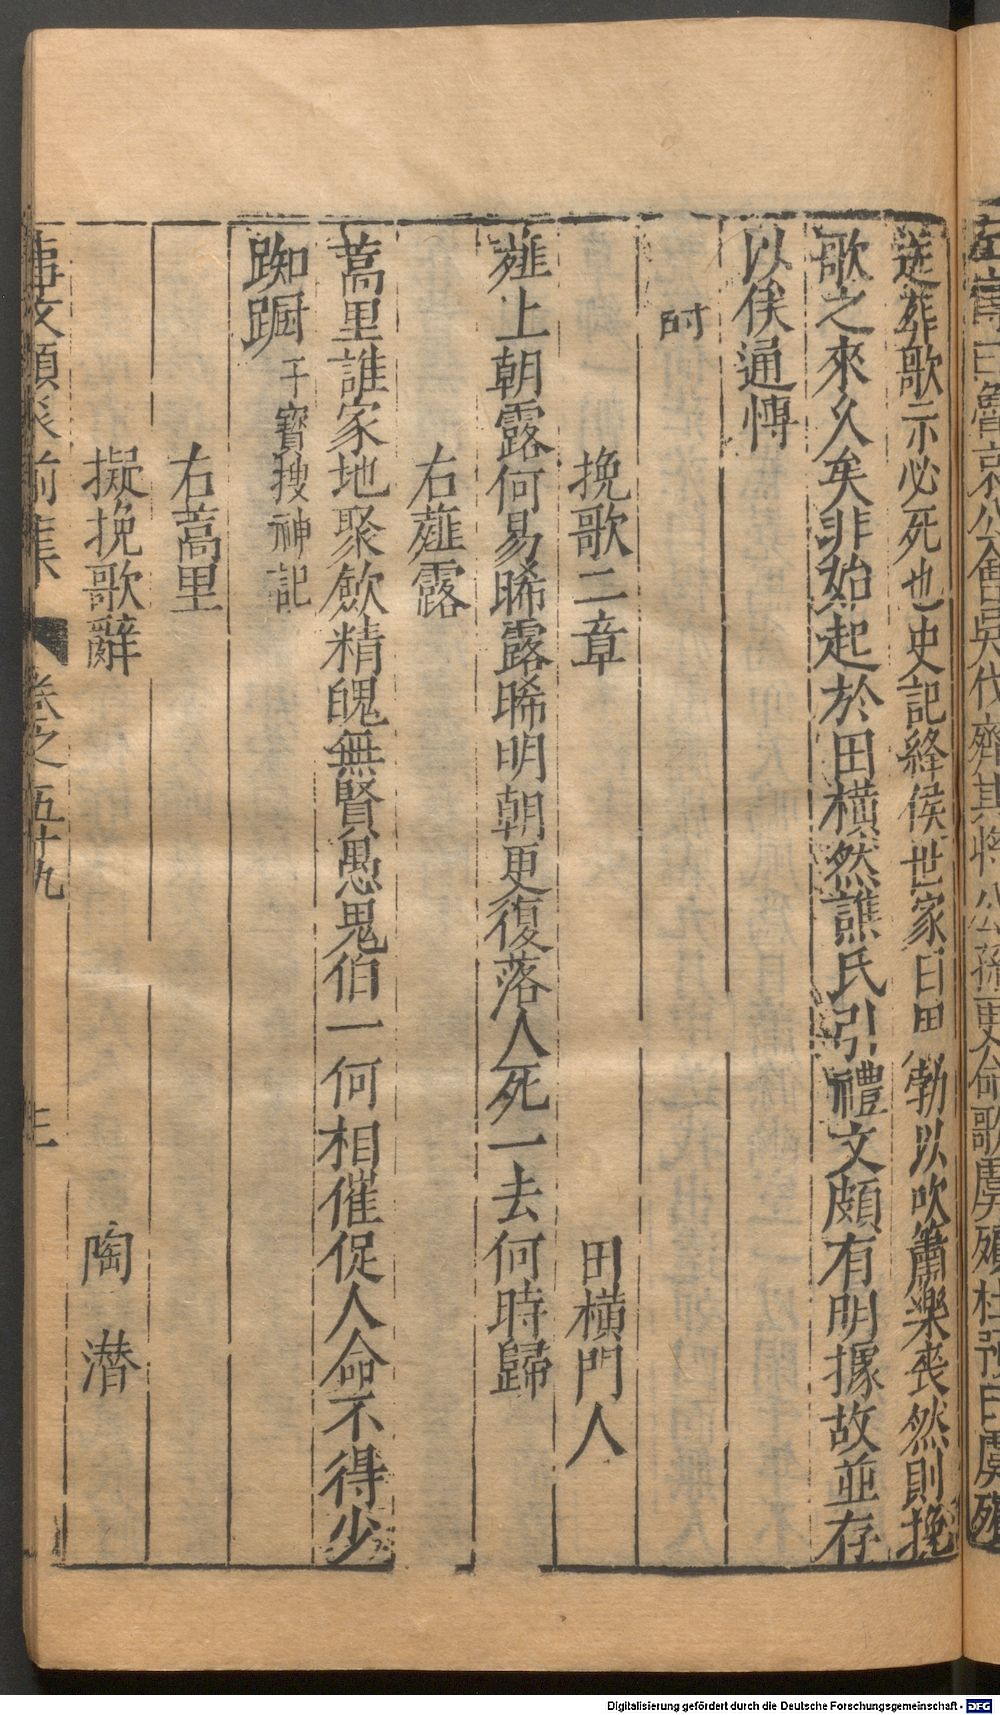 送葬歌示必死也史記絳侯世家曰田勃以吹簫樂喪然則挽
歌之來久矣非始起於田橫然譙氏引禮文頗有明據故並存
以俟通慱
詩
挽歌二章 田橫門人
薤上朝露何易晞露晞明朝更復落人死一去何時歸
右薤露
蒿里誰家地聚歛精魄無賢愚鬼伯一何相催促人命不得少
踟蹰 干寳搜神記
右蒿里
擬挽歌辭 陶潛
事文類聚前集 卷之五十九 三
Digitalisierung gefördert durch die Deutsche Forschungsgemeinschaft - DFG